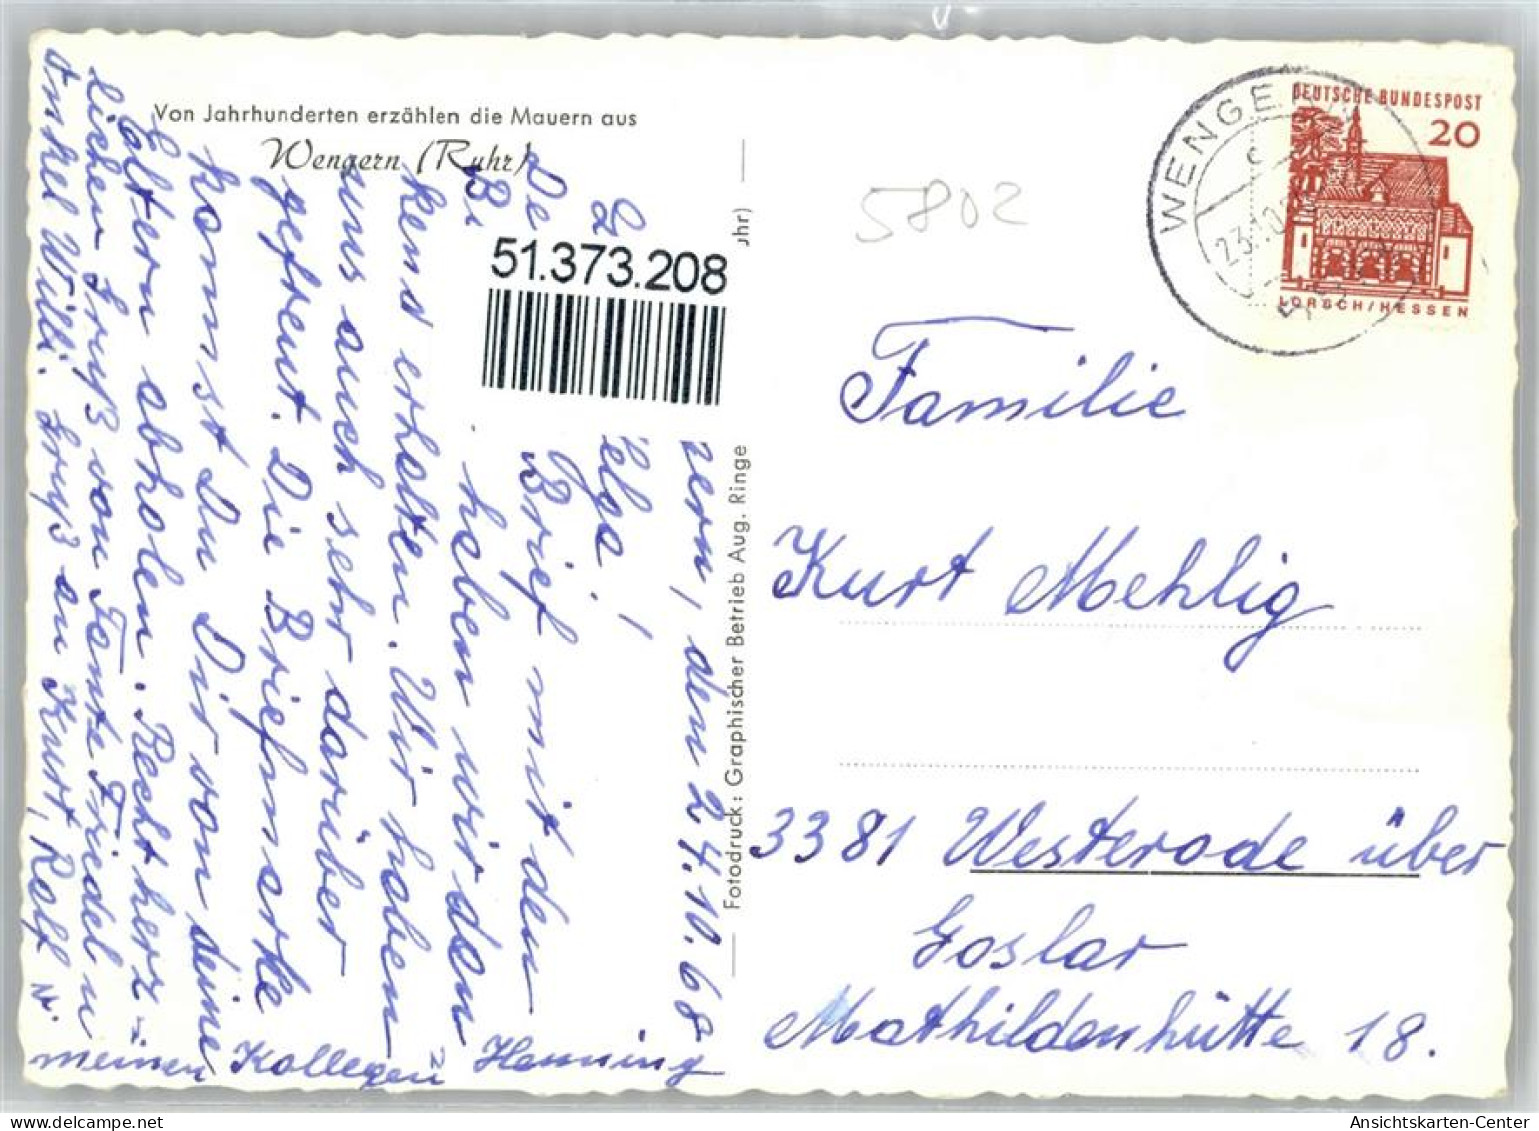 Von Jahrhunderten erzählen die Mauern aus
Wengern (Ruhr)
51.373.208
5802
WENGERN
23.10.
DEUTSCHE BUNDESPOST
20
LORSCH/HESSEN
uhr)
Fotodruck: Graphischer Betrieb Aug. Ringe
Familie
Kurt Mehlig
3381 Westerode über
Goslar
Mathildenhütte 18.
ern, den 24.10.68
L elga!
De Brief mit den
Bi haben wir den
kens erhalten. Wir haben
uns auch sehr darüber
gefreut. Die Briefmarke
konnst Du Dir von deine
Eltern abholen. Recht herz-
lichen Gruß von Tante Friedel u
Onkel Willi. Gruß an Kurt, Rolf u.
meinen Kollegen Henning
Ansichtskarten-Center.com
Ansichtskarten-Center